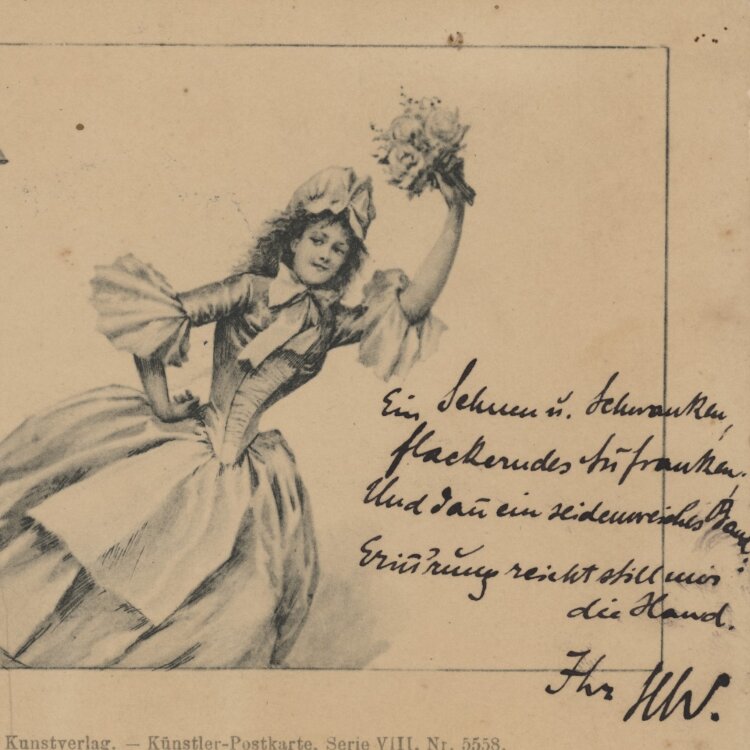 Ein Sehnen u. Schwanken,
flackerndes Aufranken,
Und dañ ein seidenweiches Band:
Eriñ'rung reicht still mir
die Hand.
Ihr HW.
Kunstverlag. — Künstler-Postkarte. Serie VIII. Nr. 5558.